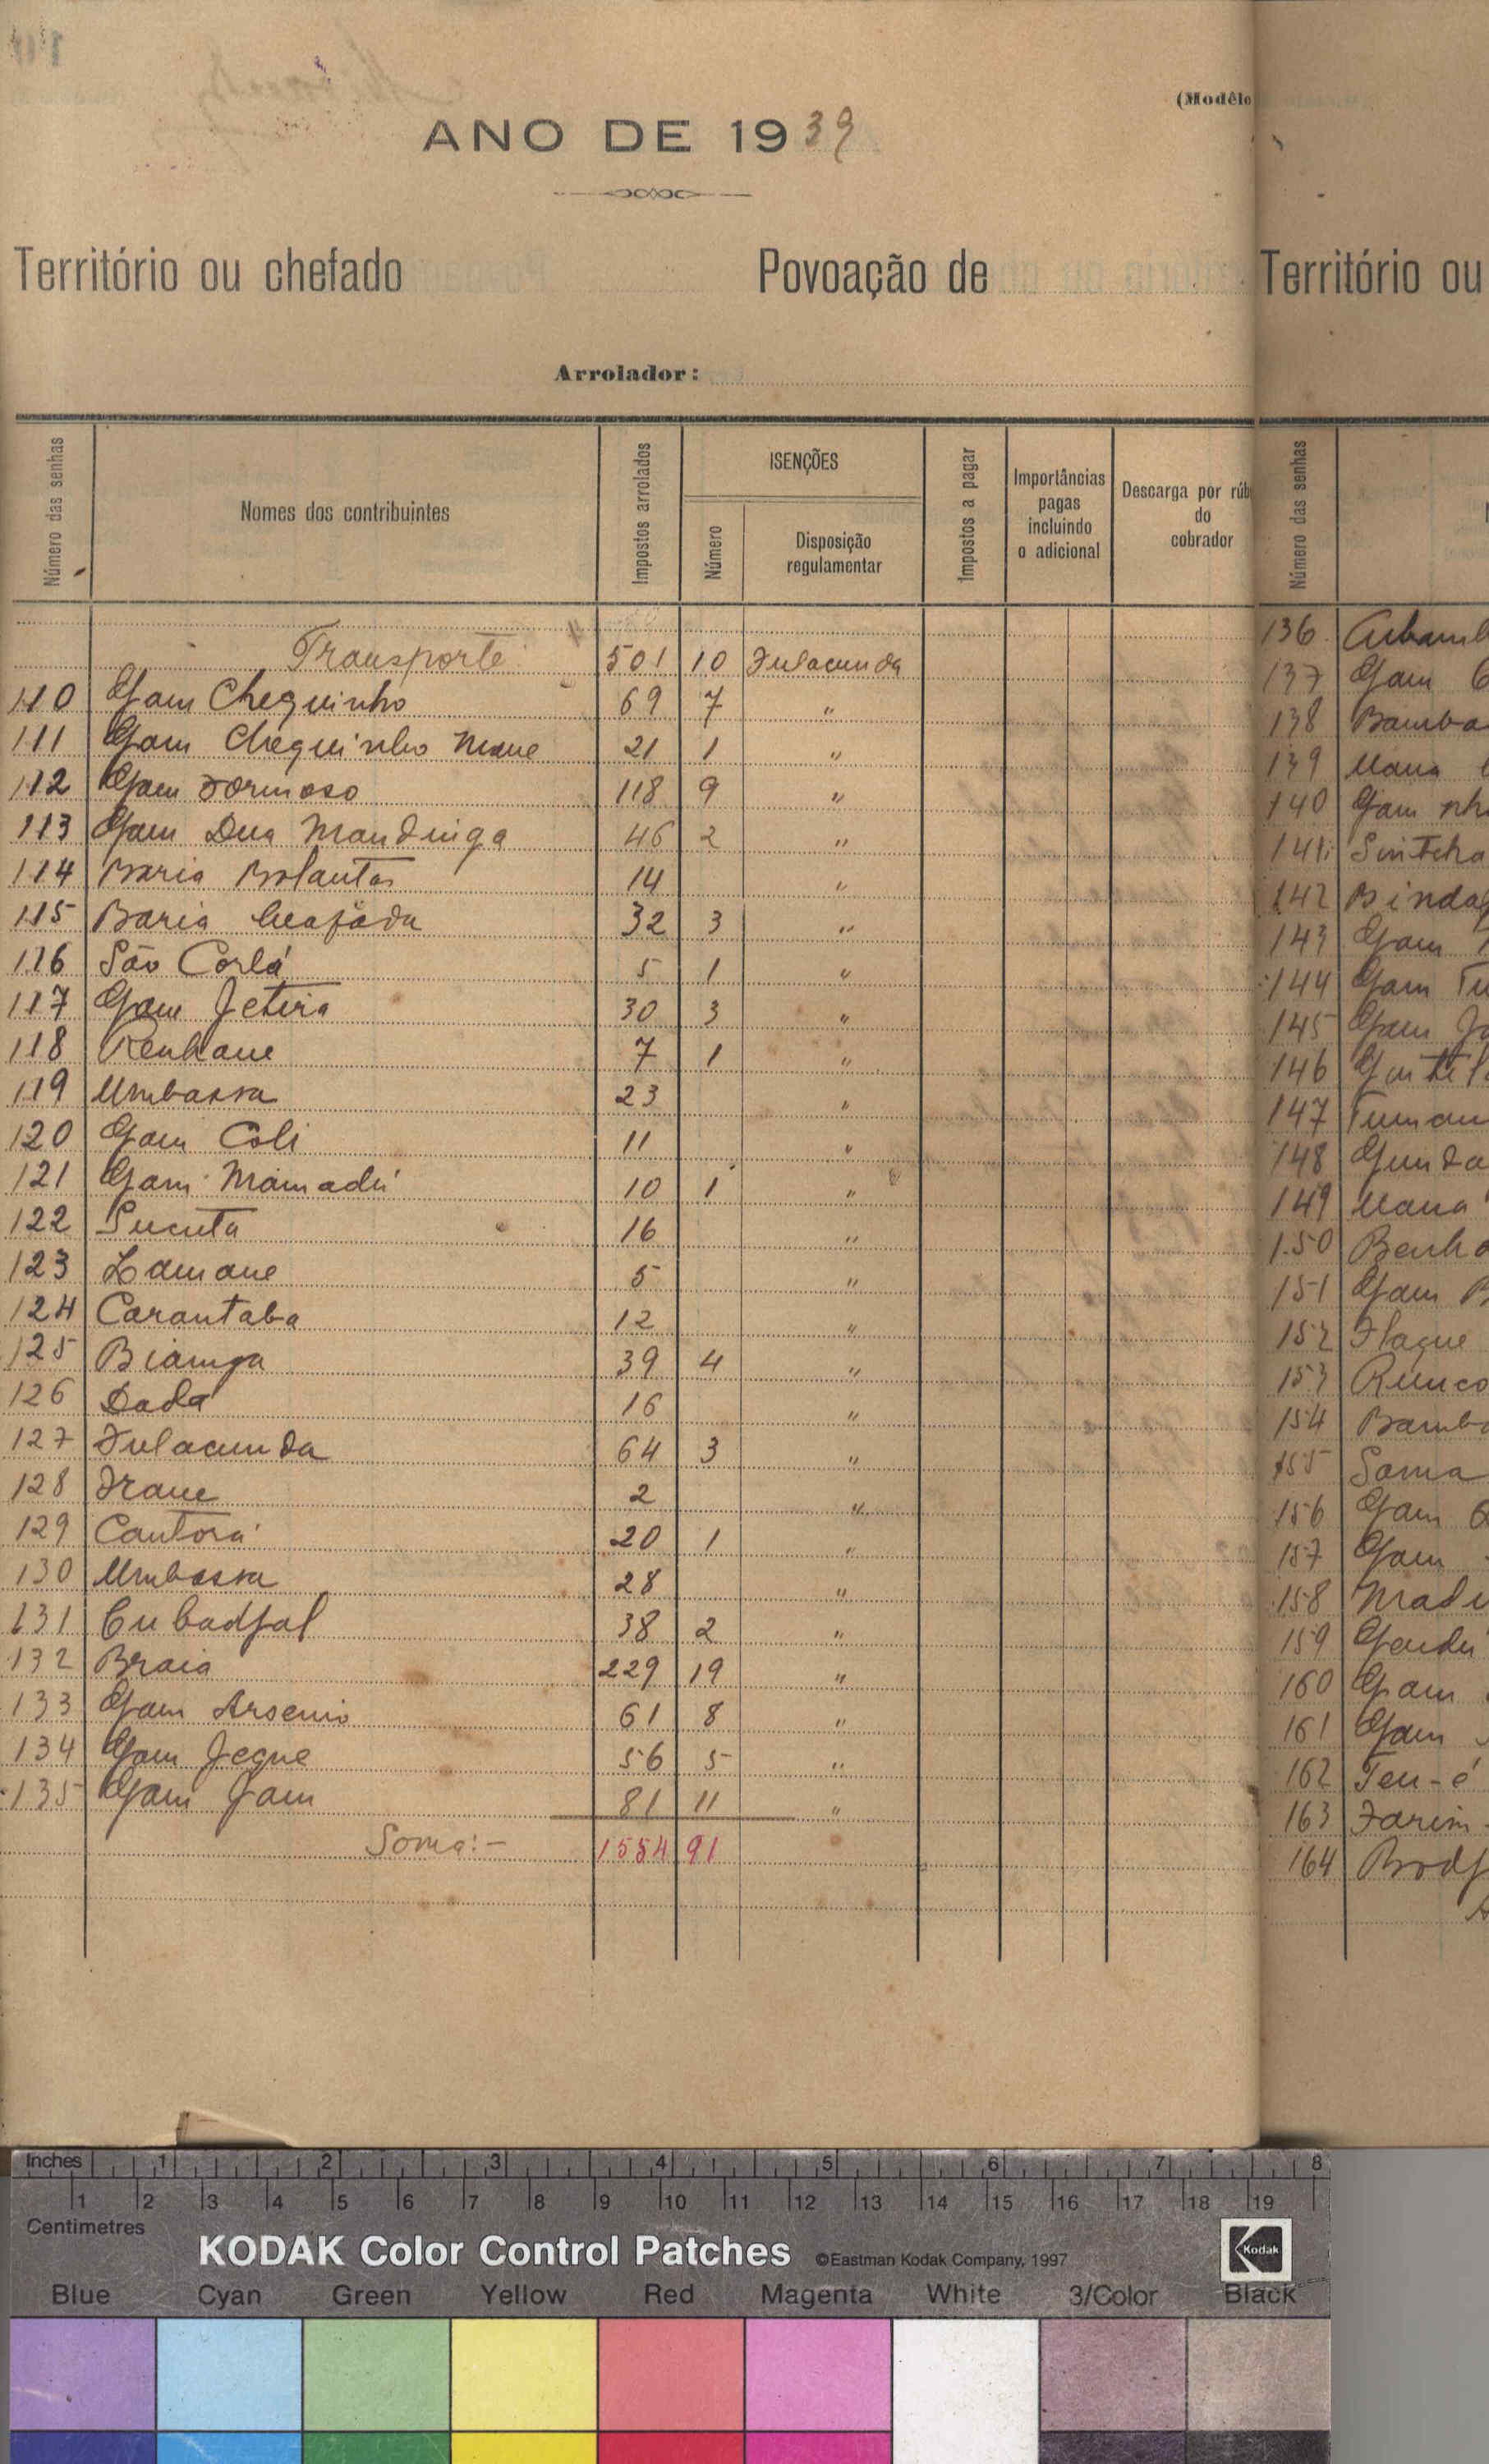 (Modêlo
ANO DE 1939
Território ou chefado Povoação de
Arrolador:
Número das senhas
Nomes dos contribuintes
Impostos arrolados
ISENÇÕES
Número
Disposição regulamentar
Impostos a pagar
Importâncias pagas incluindo o adicional
Descarga por rúb
do cobrador
Transporte 501 10 Fulacunda
110 Gam Chequinho 69 7 "
111 Gam Chequinho Mane 21 1 "
112 Gam Formoso 118 9 "
113 Gam Dua Mandinga 46 2 "
114 Baria Balantas 14 "
115 Baria Beafada 32 3 "
116 São Corlá 5 1 "
117 Gam Jetira 30 3 "
118 Renhane 7 1 "
119 Umbassa 23 "
120 Gam Coli 11 "
121 Gam Mamadú 10 1 "
122 Sucuta 16 "
123 Lamane 5 "
124 Carantaba 12 "
125 Bianga 39 4 "
126 Dada 16 "
127 Fulacunda 64 3 "
128 Frane 2 "
129 Cantora 20 1 "
130 Umbassa 28 "
131 Cubadjal 38 2 "
132 Braia 229 19 "
133 Gam Arsenio 61 8 "
134 Gam Jeque 56 5 "
135 Gam Jam 81 11 "
Soma:- 1554 91
Território ou
Número das senhas
136
137 Gam
138 Bamba
139 Uana
140 Gam
141 Sintcha
142
143 Gam
144 Gam
145 Gam
146
147
148
149 Uana
150
151 Gam
152 Flaque
153
154
155
156 Gam
157 Gam
158
159
160 Gam
161 Gam
162
163 Farim
164
Inches 1 2 3 4 5 6 7 8
1 2 3 4 5 6 7 8 9 10 11 12 13 14 15 16 17 18 19
Centimetres
KODAK Color Control Patches ©Eastman Kodak Company, 1997 Kodak
Blue Cyan Green Yellow Red Magenta White 3/Color Black